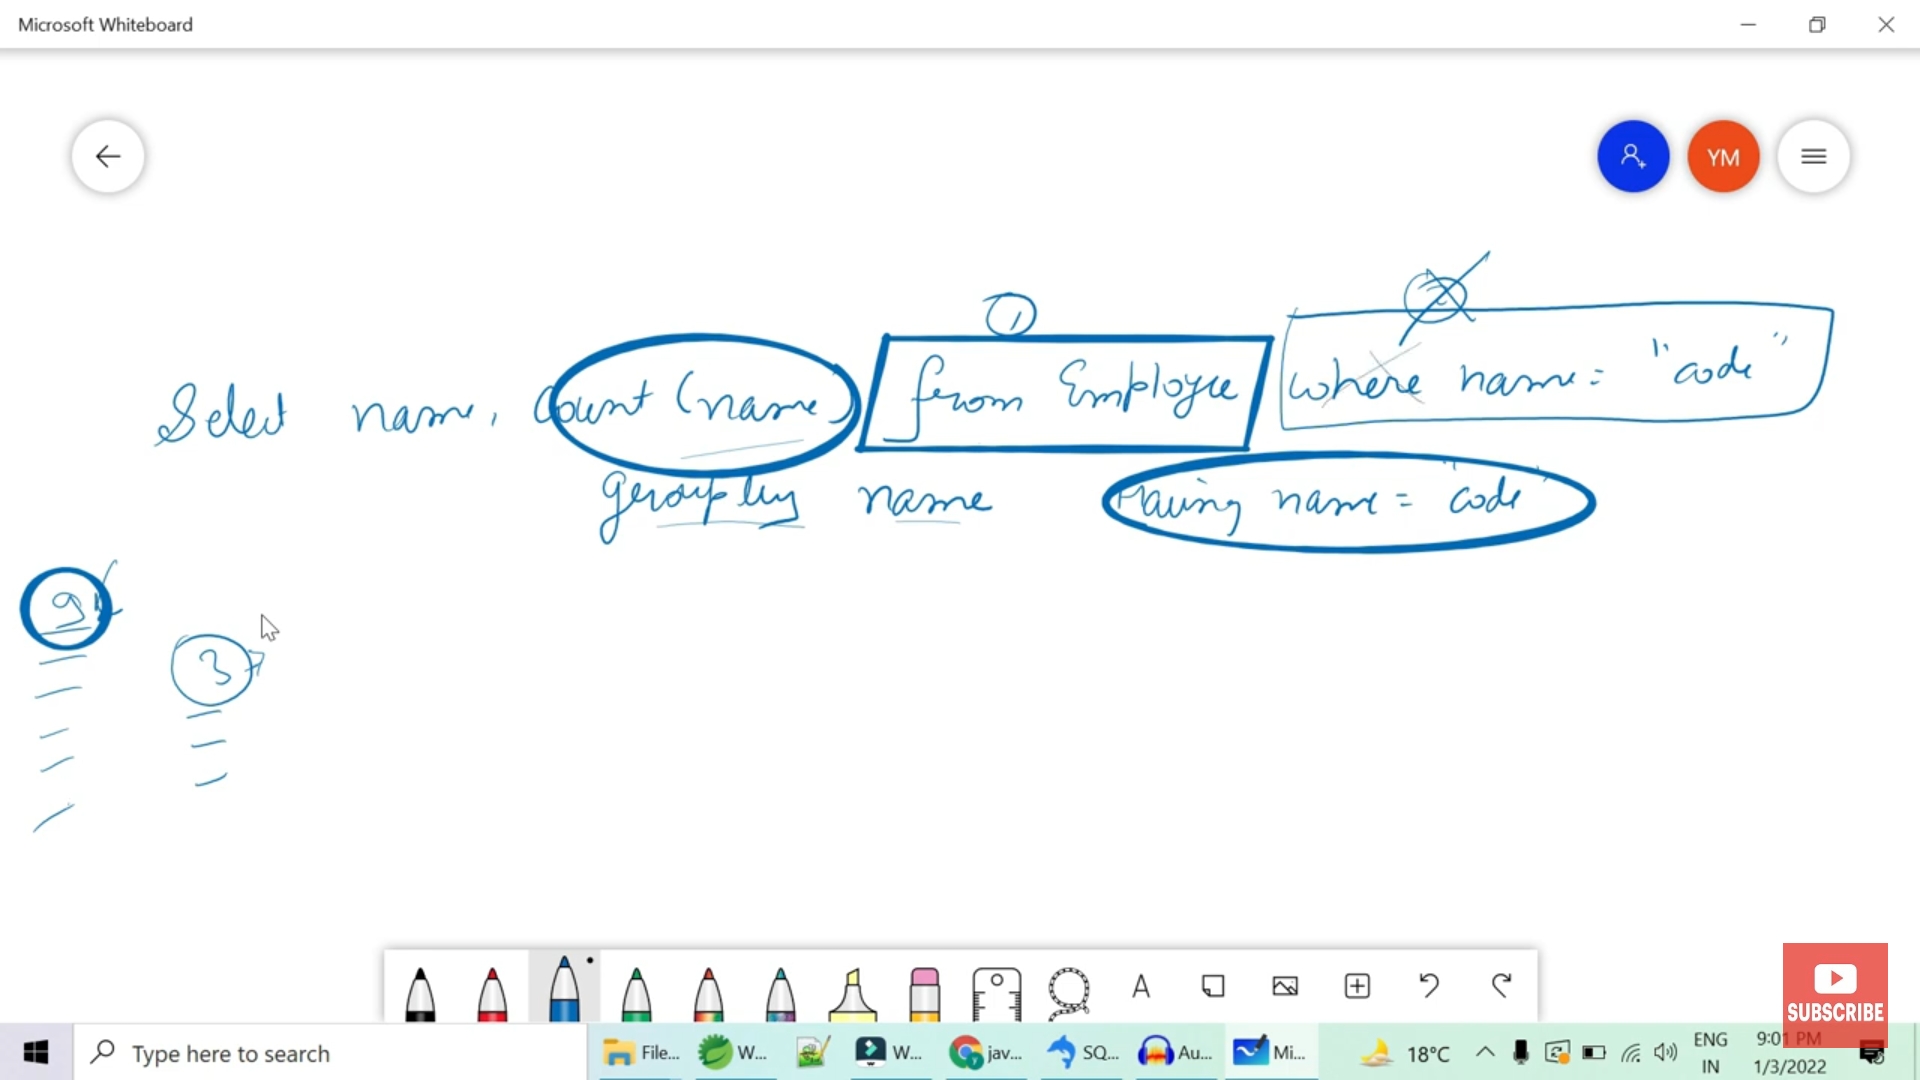 Microsoft Whiteboard
YM
1
2
Select name, Count (name) from Employee where name = "code"
group by name Having name = "code"
9
3
A
SUBSCRIBE
Type here to search
File...
W...
W...
jav...
SQ...
Au...
Mi...
18°C
ENG
IN
9:01 PM
1/3/2022